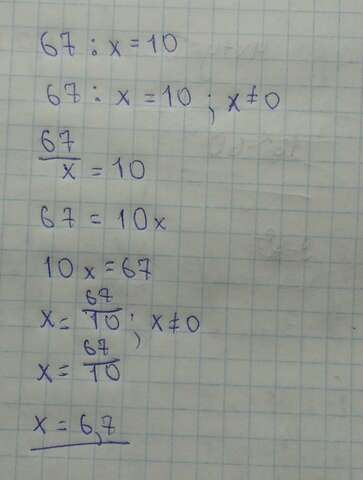 67 : x = 10
67 : x = 10 ; x ≠ 0
67/x = 10
67 = 10x
10x = 67
x = 67/10 ; x ≠ 0
x = 67/10
x = 6,7